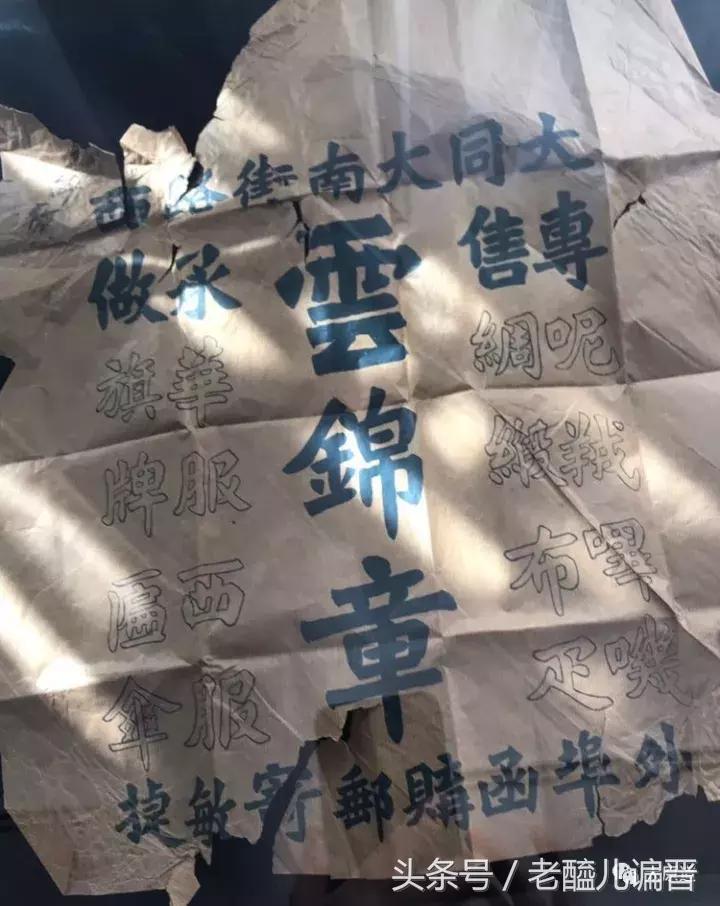 大同大南街路西
專售
呢羢嗶嘰
綢緞布疋
雲錦章
承做
華服西服
旗牌匾傘
外埠函購郵寄敏捷
头条号 / 老醯儿谝晋